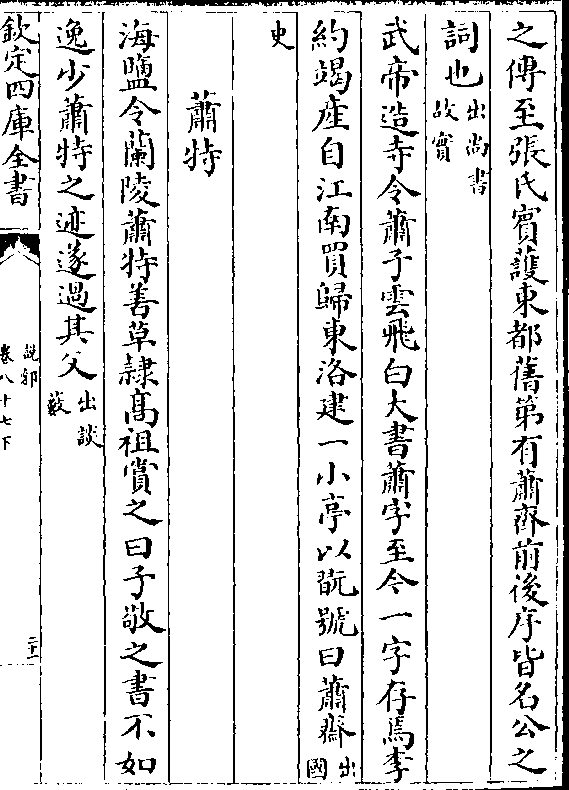 之傳至張氏賓護東都舊第有蕭齋前後序皆名公之
詞也出尚書故實
武帝造寺令蕭子雲飛白大書蕭字至今一字存焉李
約竭產自江南買歸東洛建一小亭以翫號曰蕭齋出國
史
蕭特
海鹽令蘭陵蕭特善草隸高祖賞之曰子敬之書不如
逸少蕭特之迹遂過其父出談藪
欽定四庫全書
說郛
卷八十七下
二十一